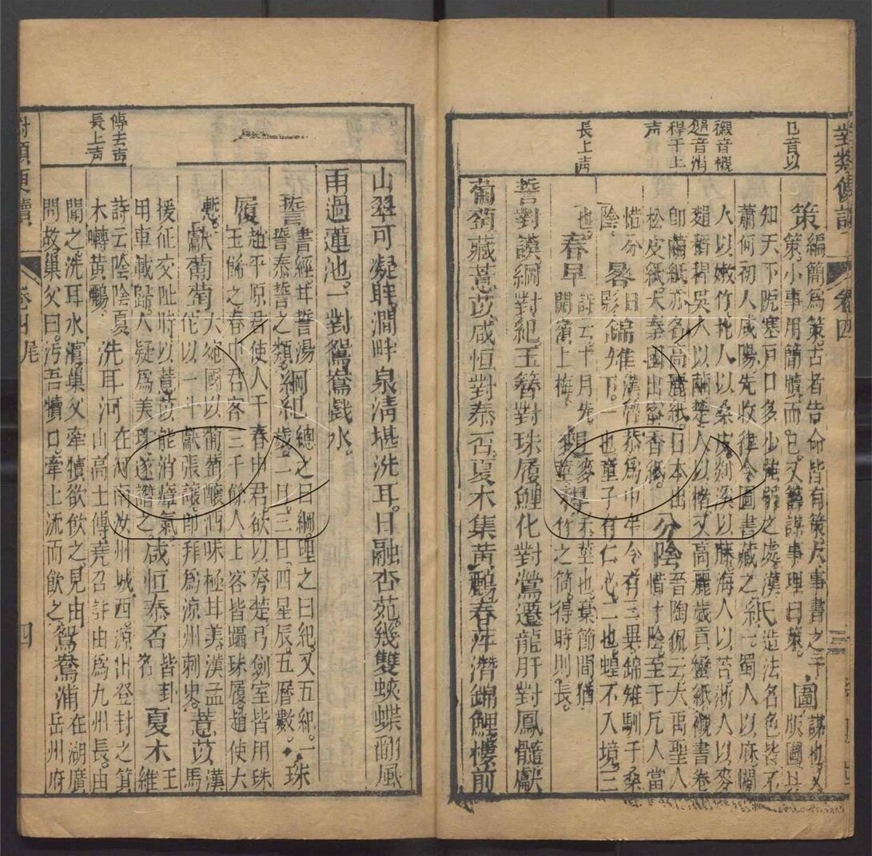 對類便讀
卷四
三
巳音以
策編簡爲策古者告命皆有策大事書之于
策小事用簡牘而已又籌謀事理曰策
圖版圖
謀也又
知天下阨塞戸口多少強弱之處漢氏造法名色皆不
蕭何初入咸陽先收律令圖書藏之紙一蜀人以麻閩
人以嫩竹北人以桑皮剡溪以藤海人以苔浙人以麥
襯音櫬
趐稻稈吳人以繭楚人以楮又高麗歲貢蠻紙襯書卷
稈干上
聲
即繭紙亦名高麗紙日本出
松皮紙大秦國出密香紙
分陰晉陶侃云大禹聖人
惜寸陰至于凡人當
惜分
陰
晷日
影
錦雉漢魯恭爲中牟令有三異錦雉馴于桑
下一也童子有仁心二也蝗不入境三
也
春早詩云十月先
開嶺上梅
長上声
竹之筒得時則長
誓對謨綱對紀玉簪對珠履鯉化對鶯遷龍肝對鳳髓獻
葡萄藏薏苡咸恒對泰否夏木集黃鸝春萍潛錦鯉樓前
山翠可凝眸澗畔泉清堪洗耳日融杏苑幾雙蛺蝶翩風
雨過蓮池一對鴛鴦戲水
誓書經有誓湯
誓泰誓之類
綱紀總之曰綱理之曰紀又五紀一
歲二月三日四星辰五曆數
珠
履趙平原君使人于春申君欲以夸楚刀劍室皆用珠
玉飾之春申君客三千餘人上客皆躡珠履趙使大
慙
獻葡萄大宛國以葡萄釀酒味極甘美漢孟
佗以一斗獻張讓即拜爲涼州刺史
薏苡漢
馬
援征交趾時以薏苡能消瘴氣
用車載歸人疑爲美珠遂譖之
咸恒泰否皆卦
名
夏木王
維
傳去声
長上声
詩云陰陰夏
木囀黃鸝
洗耳河在河南汝州城西源出登封之箕
山高士傳堯召許由爲九州長由
聞之洗耳水濱巢父牽犢欲飲之見由
問故巢父曰污吾犢口牽上流而飲之
鴛鴦浦在湖廣
岳州府
對類便讀
卷四尾
四